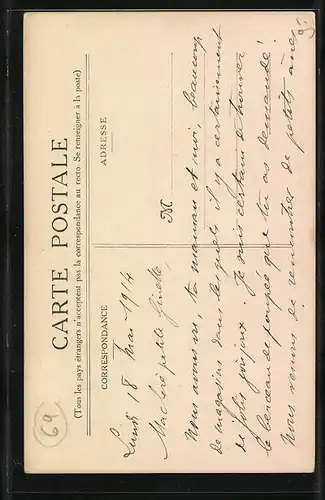 CARTE POSTALE
(Tous les pays étrangers n'acceptent pas la correspondance au recto. Se renseigner à la poste)
CORRESPONDANCE
ADRESSE
M
Lundi 18 Mai 1914
Ma chère petite Ginette,
Nous avons vu, ta maman et moi, beaucoup
de magasins dans lesquels il y a certainement
de jolis joujoux. Je suis certain de trouver
le berceau de poupée que tu as demandé!
Nous venons de rencontrer de petits ânes
69